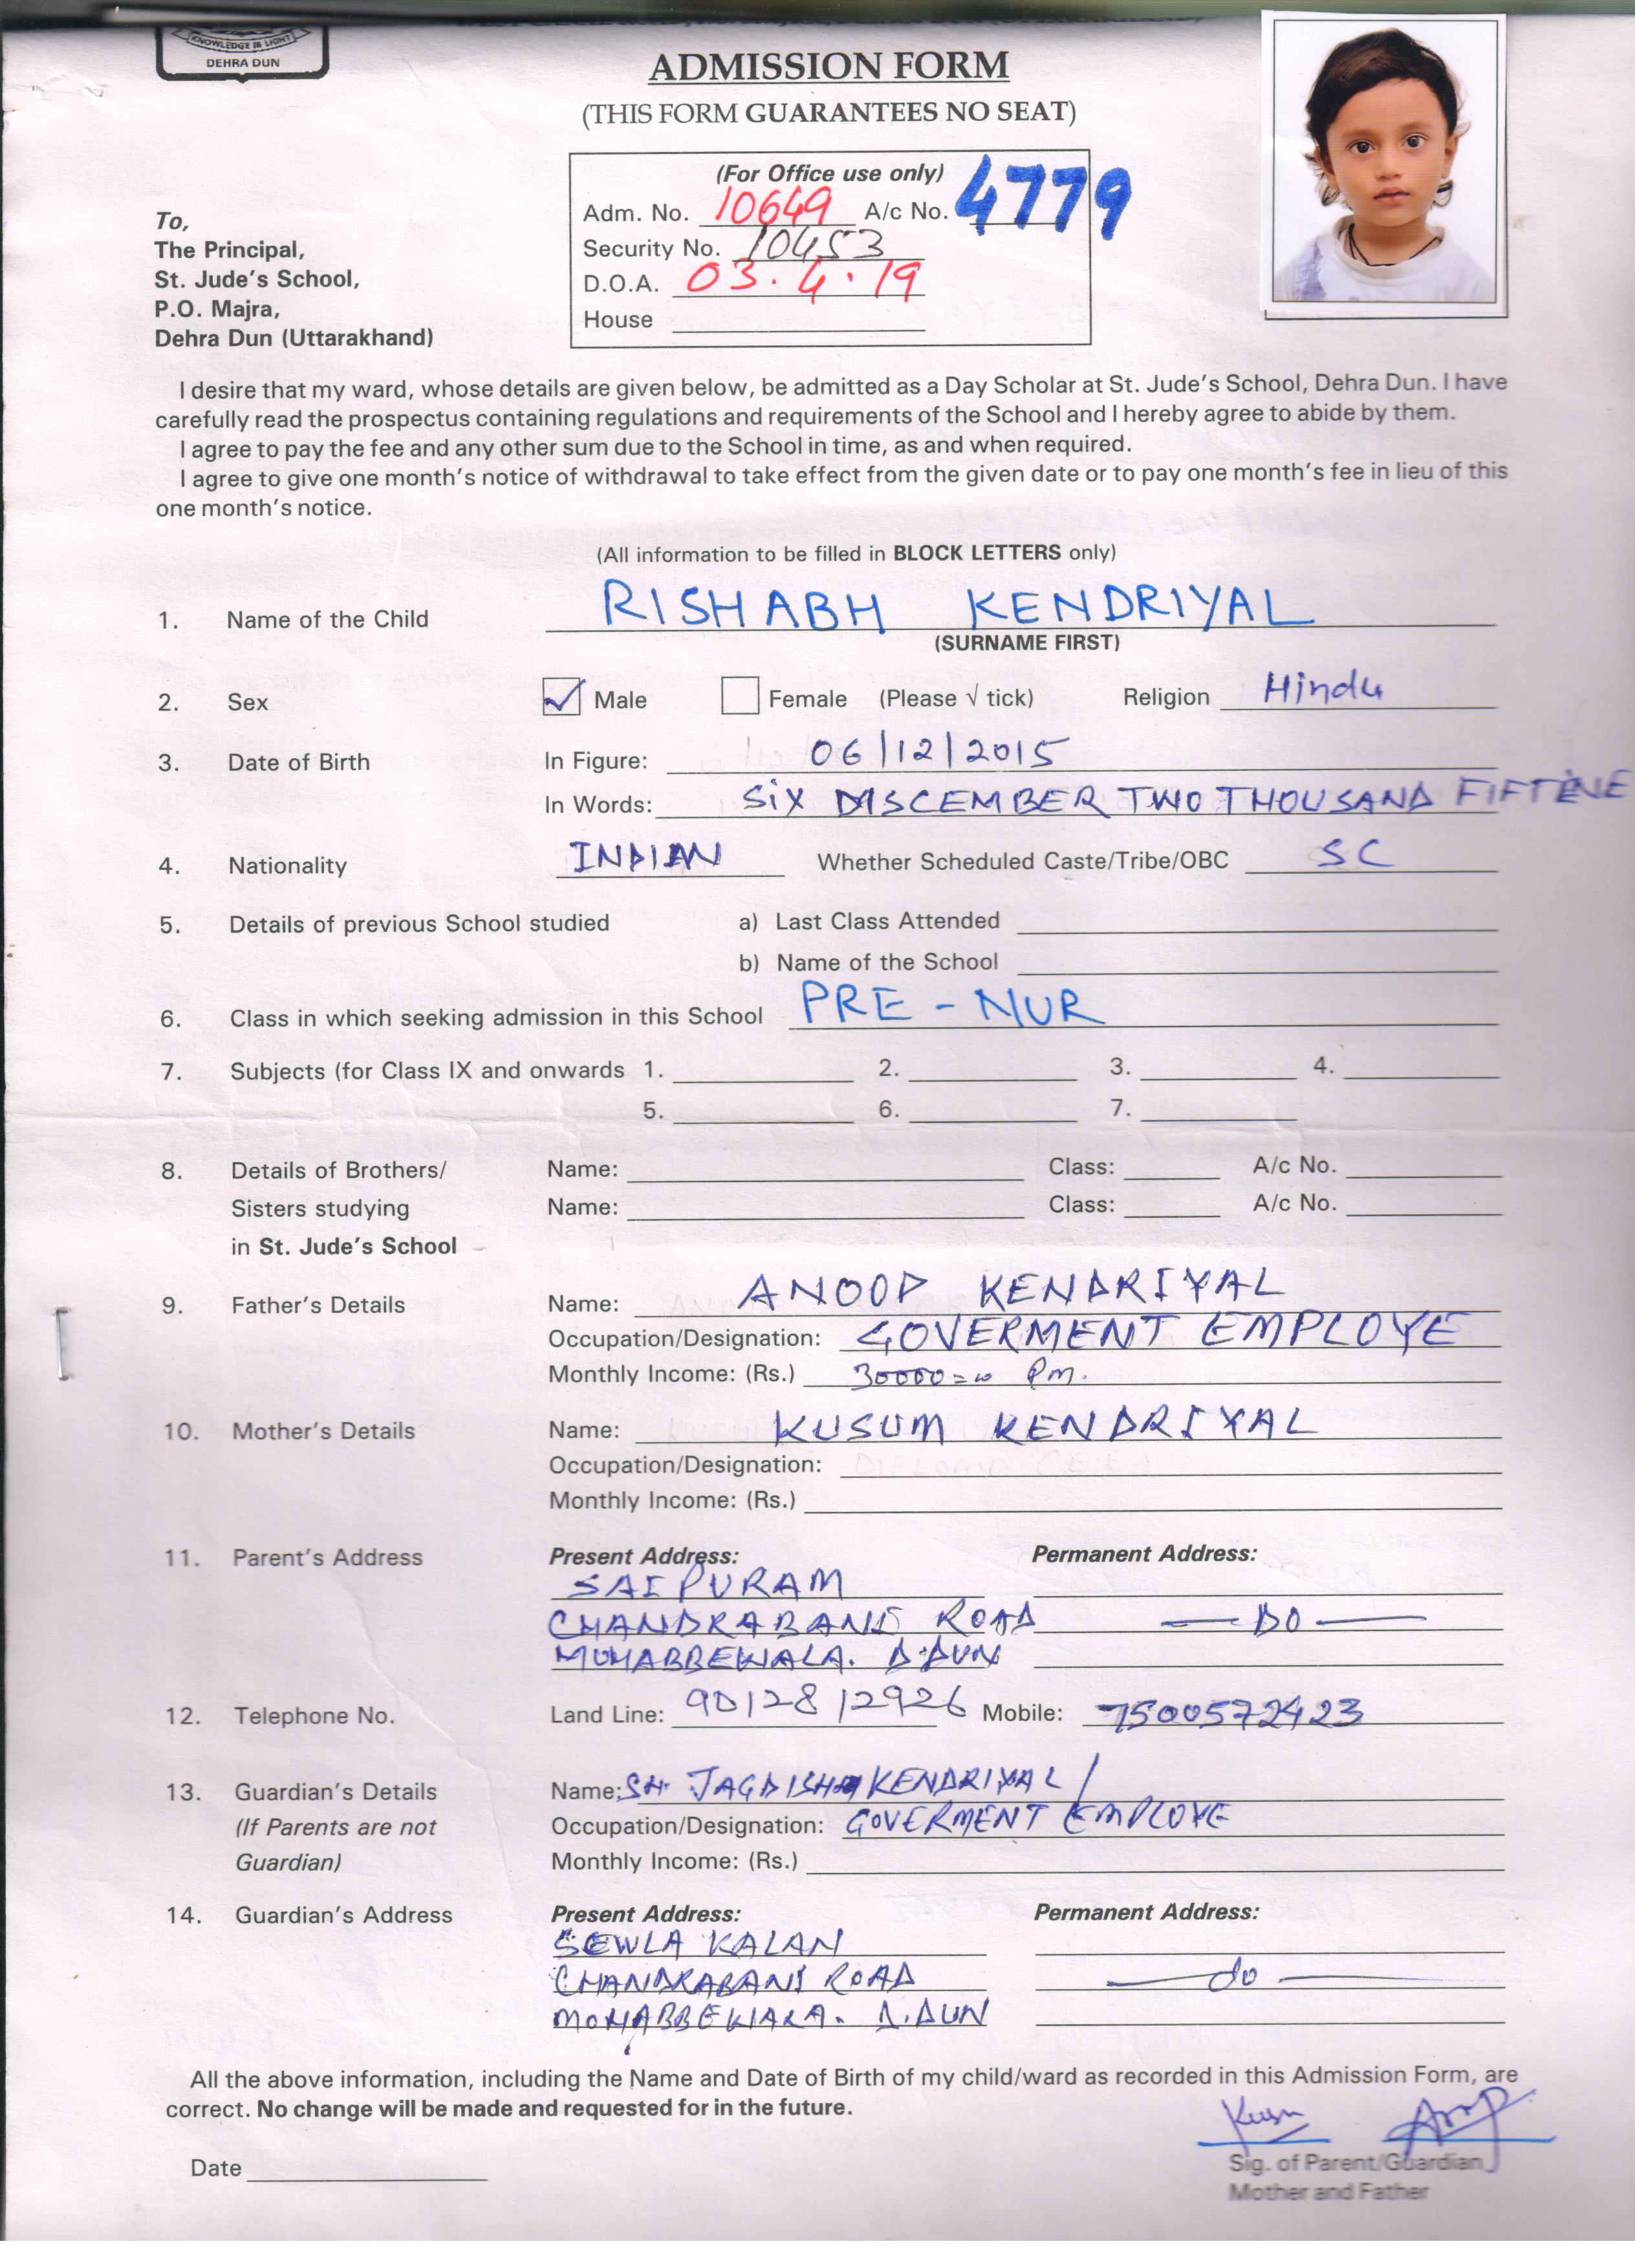 KNOWLEDGE IS LIGHT
DEHRA DUN
ADMISSION FORM
(THIS FORM GUARANTEES NO SEAT)
(For Office use only)
Adm. No. 10649 A/c No. 4779
Security No. 10453
D.O.A. 03.4.19
House
To,
The Principal,
St. Jude's School,
P.O. Majra,
Dehra Dun (Uttarakhand)
I desire that my ward, whose details are given below, be admitted as a Day Scholar at St. Jude's School, Dehra Dun. I have
carefully read the prospectus containing regulations and requirements of the School and I hereby agree to abide by them.
I agree to pay the fee and any other sum due to the School in time, as and when required.
I agree to give one month's notice of withdrawal to take effect from the given date or to pay one month's fee in lieu of this
one month's notice.
(All information to be filled in BLOCK LETTERS only)
1. Name of the Child RISHABH KENDRIYAL
(SURNAME FIRST)
2. Sex Male Female (Please √ tick) Religion Hindu
3. Date of Birth In Figure: 06/12/2015
In Words: SIX DISCEMBER TWO THOUSAND FIFTENE
4. Nationality INDIAN Whether Scheduled Caste/Tribe/OBC SC
5. Details of previous School studied a) Last Class Attended
b) Name of the School
6. Class in which seeking admission in this School PRE - NUR
7. Subjects (for Class IX and onwards 1. 2. 3. 4.
5. 6. 7.
8. Details of Brothers/ Name: Class: A/c No.
Sisters studying Name: Class: A/c No.
in St. Jude's School
9. Father's Details Name: ANOOP KENDRIYAL
Occupation/Designation: GOVERMENT EMPLOYE
Monthly Income: (Rs.) 30000=00 Pm.
10. Mother's Details Name: KUSUM KENDRIYAL
Occupation/Designation:
Monthly Income: (Rs.)
11. Parent's Address Present Address: Permanent Address:
SAI PURAM
CHANDRABANI ROAD — DO —
MOHABBEWALA. D.DUN
12. Telephone No. Land Line: 9012812926 Mobile: 7500572423
13. Guardian's Details Name: SH. JAGDISH KENDRIYAL
(If Parents are not Occupation/Designation: GOVERMENT EMPLOYE
Guardian) Monthly Income: (Rs.)
14. Guardian's Address Present Address: Permanent Address:
SEWLA KALAN
CHANDRABANI ROAD — do —
MOHABBEWALA. D.DUN
All the above information, including the Name and Date of Birth of my child/ward as recorded in this Admission Form, are
correct. No change will be made and requested for in the future.
Date
Sig. of Parent/Guardian
Mother and Father